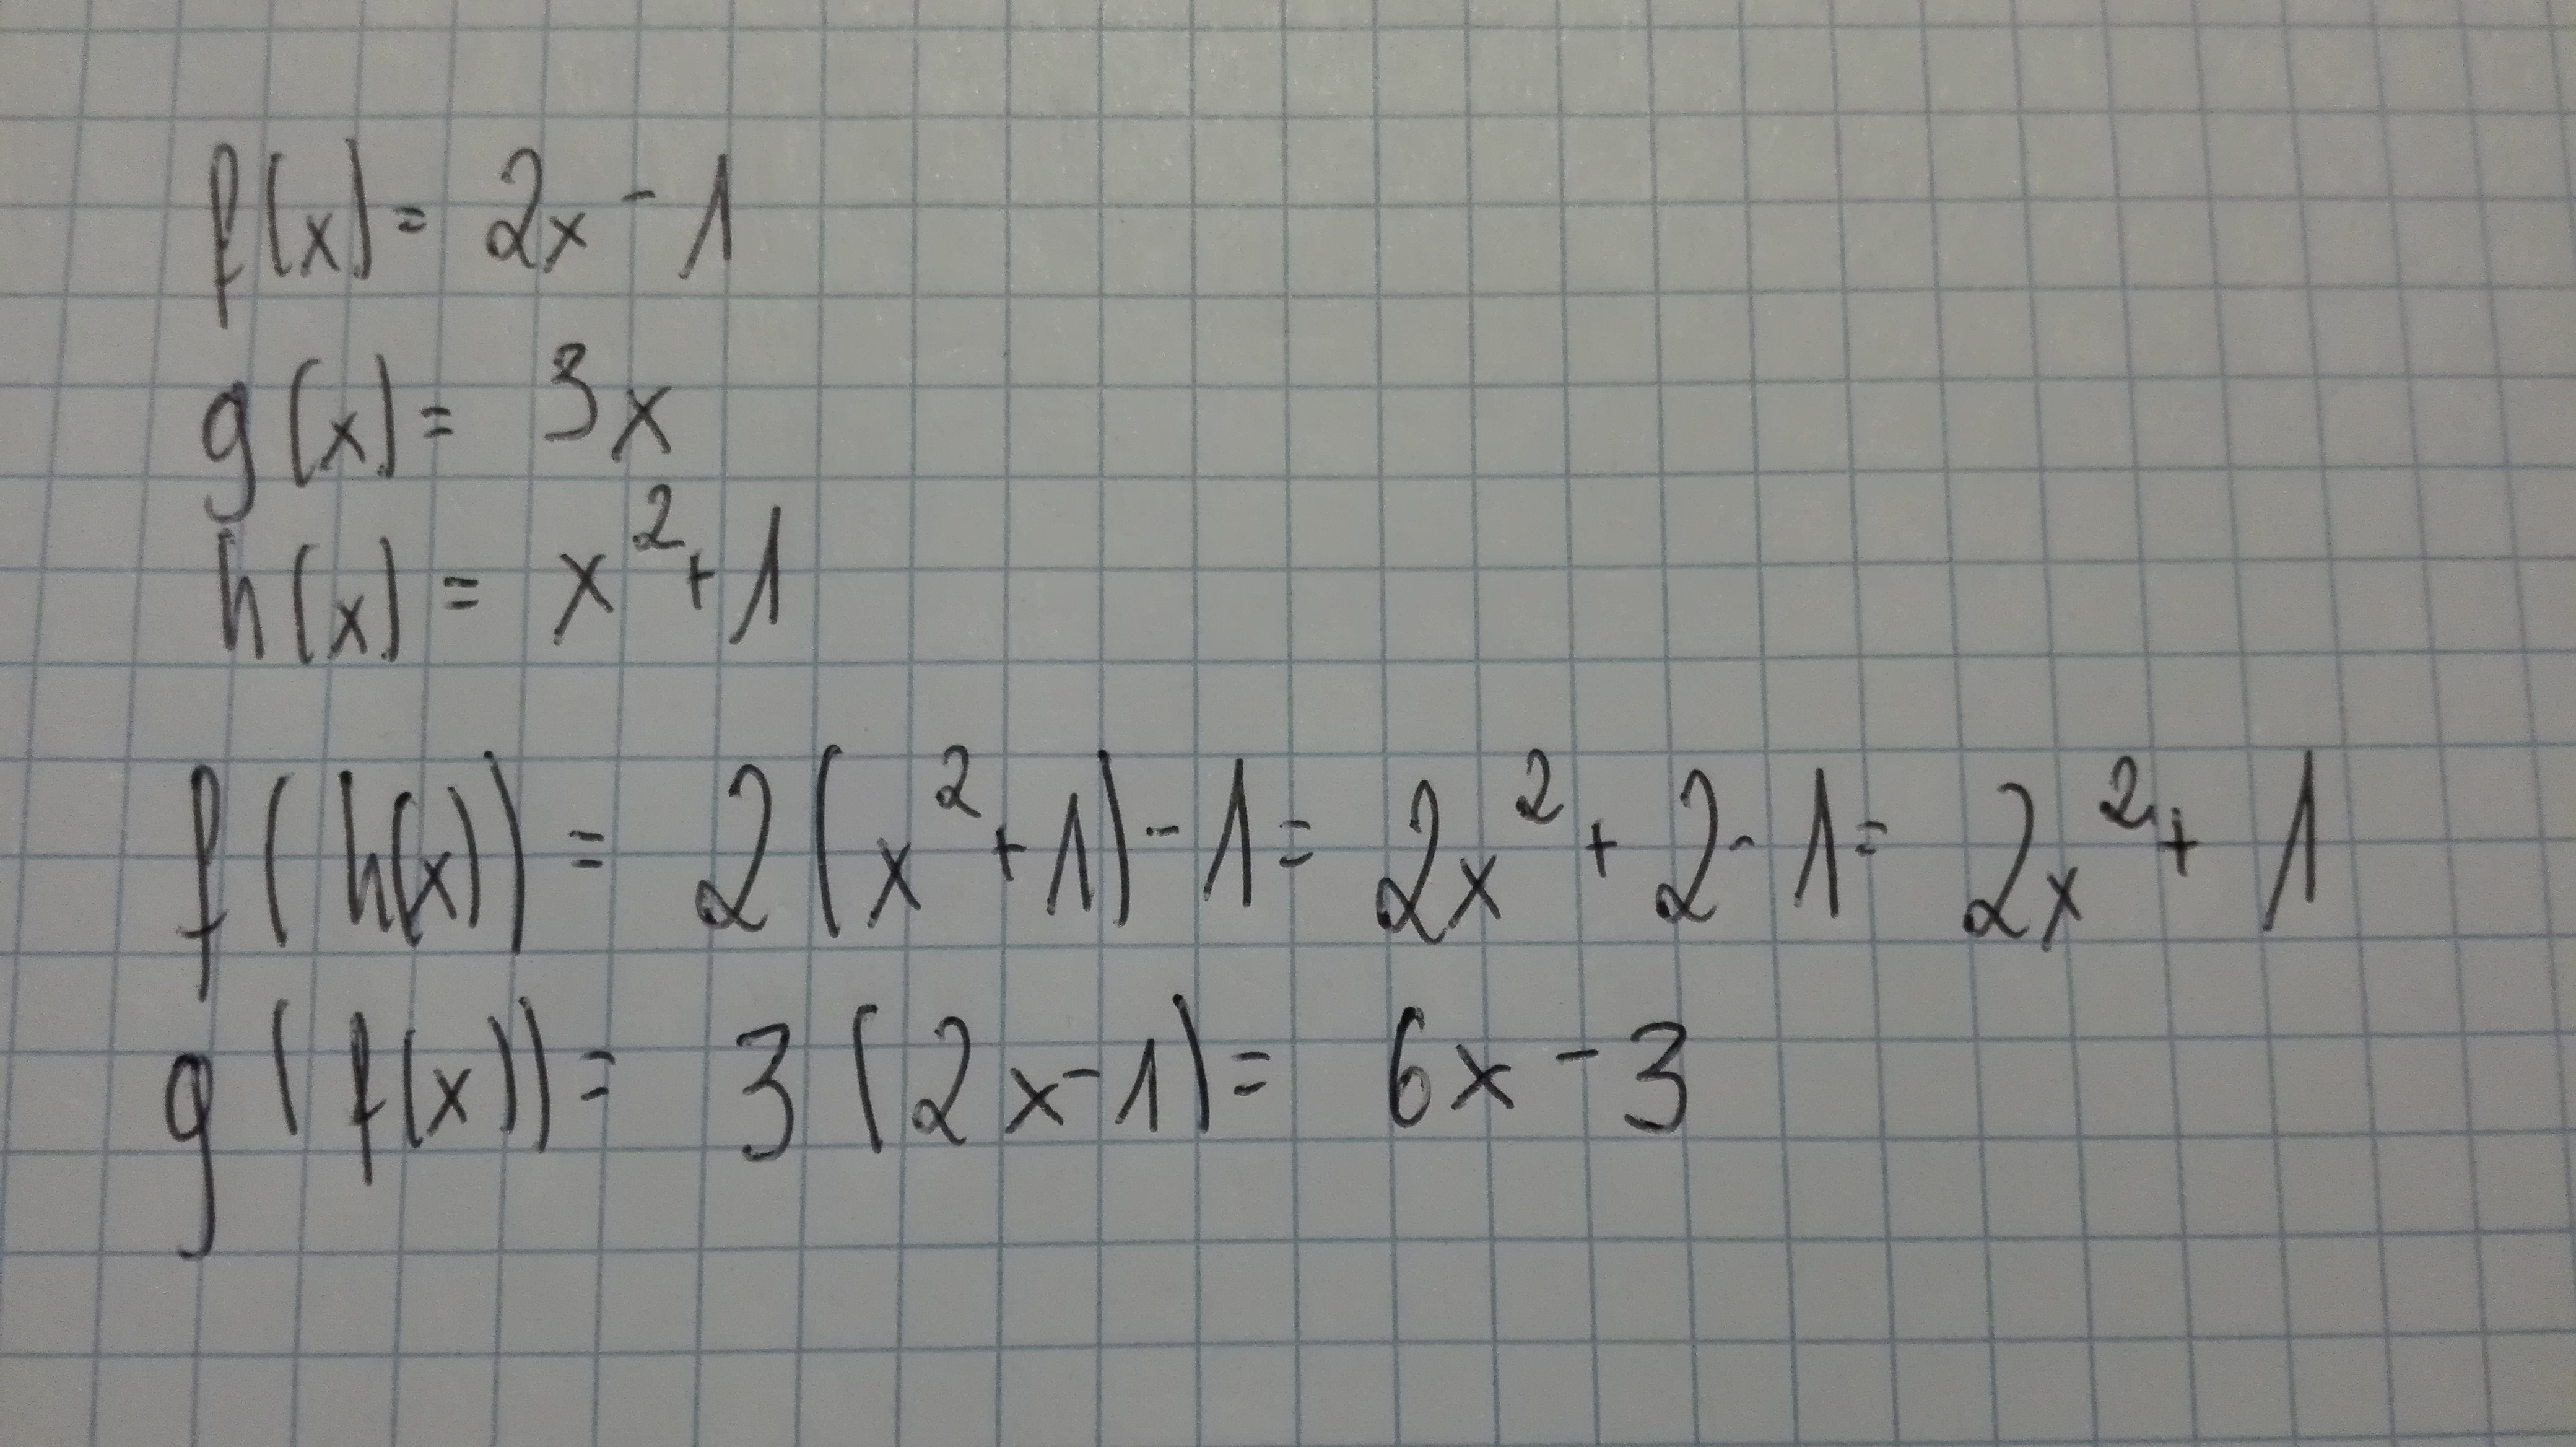 f(x) = 2x - 1
g(x) = 3x
h(x) = x² + 1
f(h(x)) = 2(x² + 1) - 1 = 2x² + 2 - 1 = 2x² + 1
g(f(x)) = 3(2x - 1) = 6x - 3